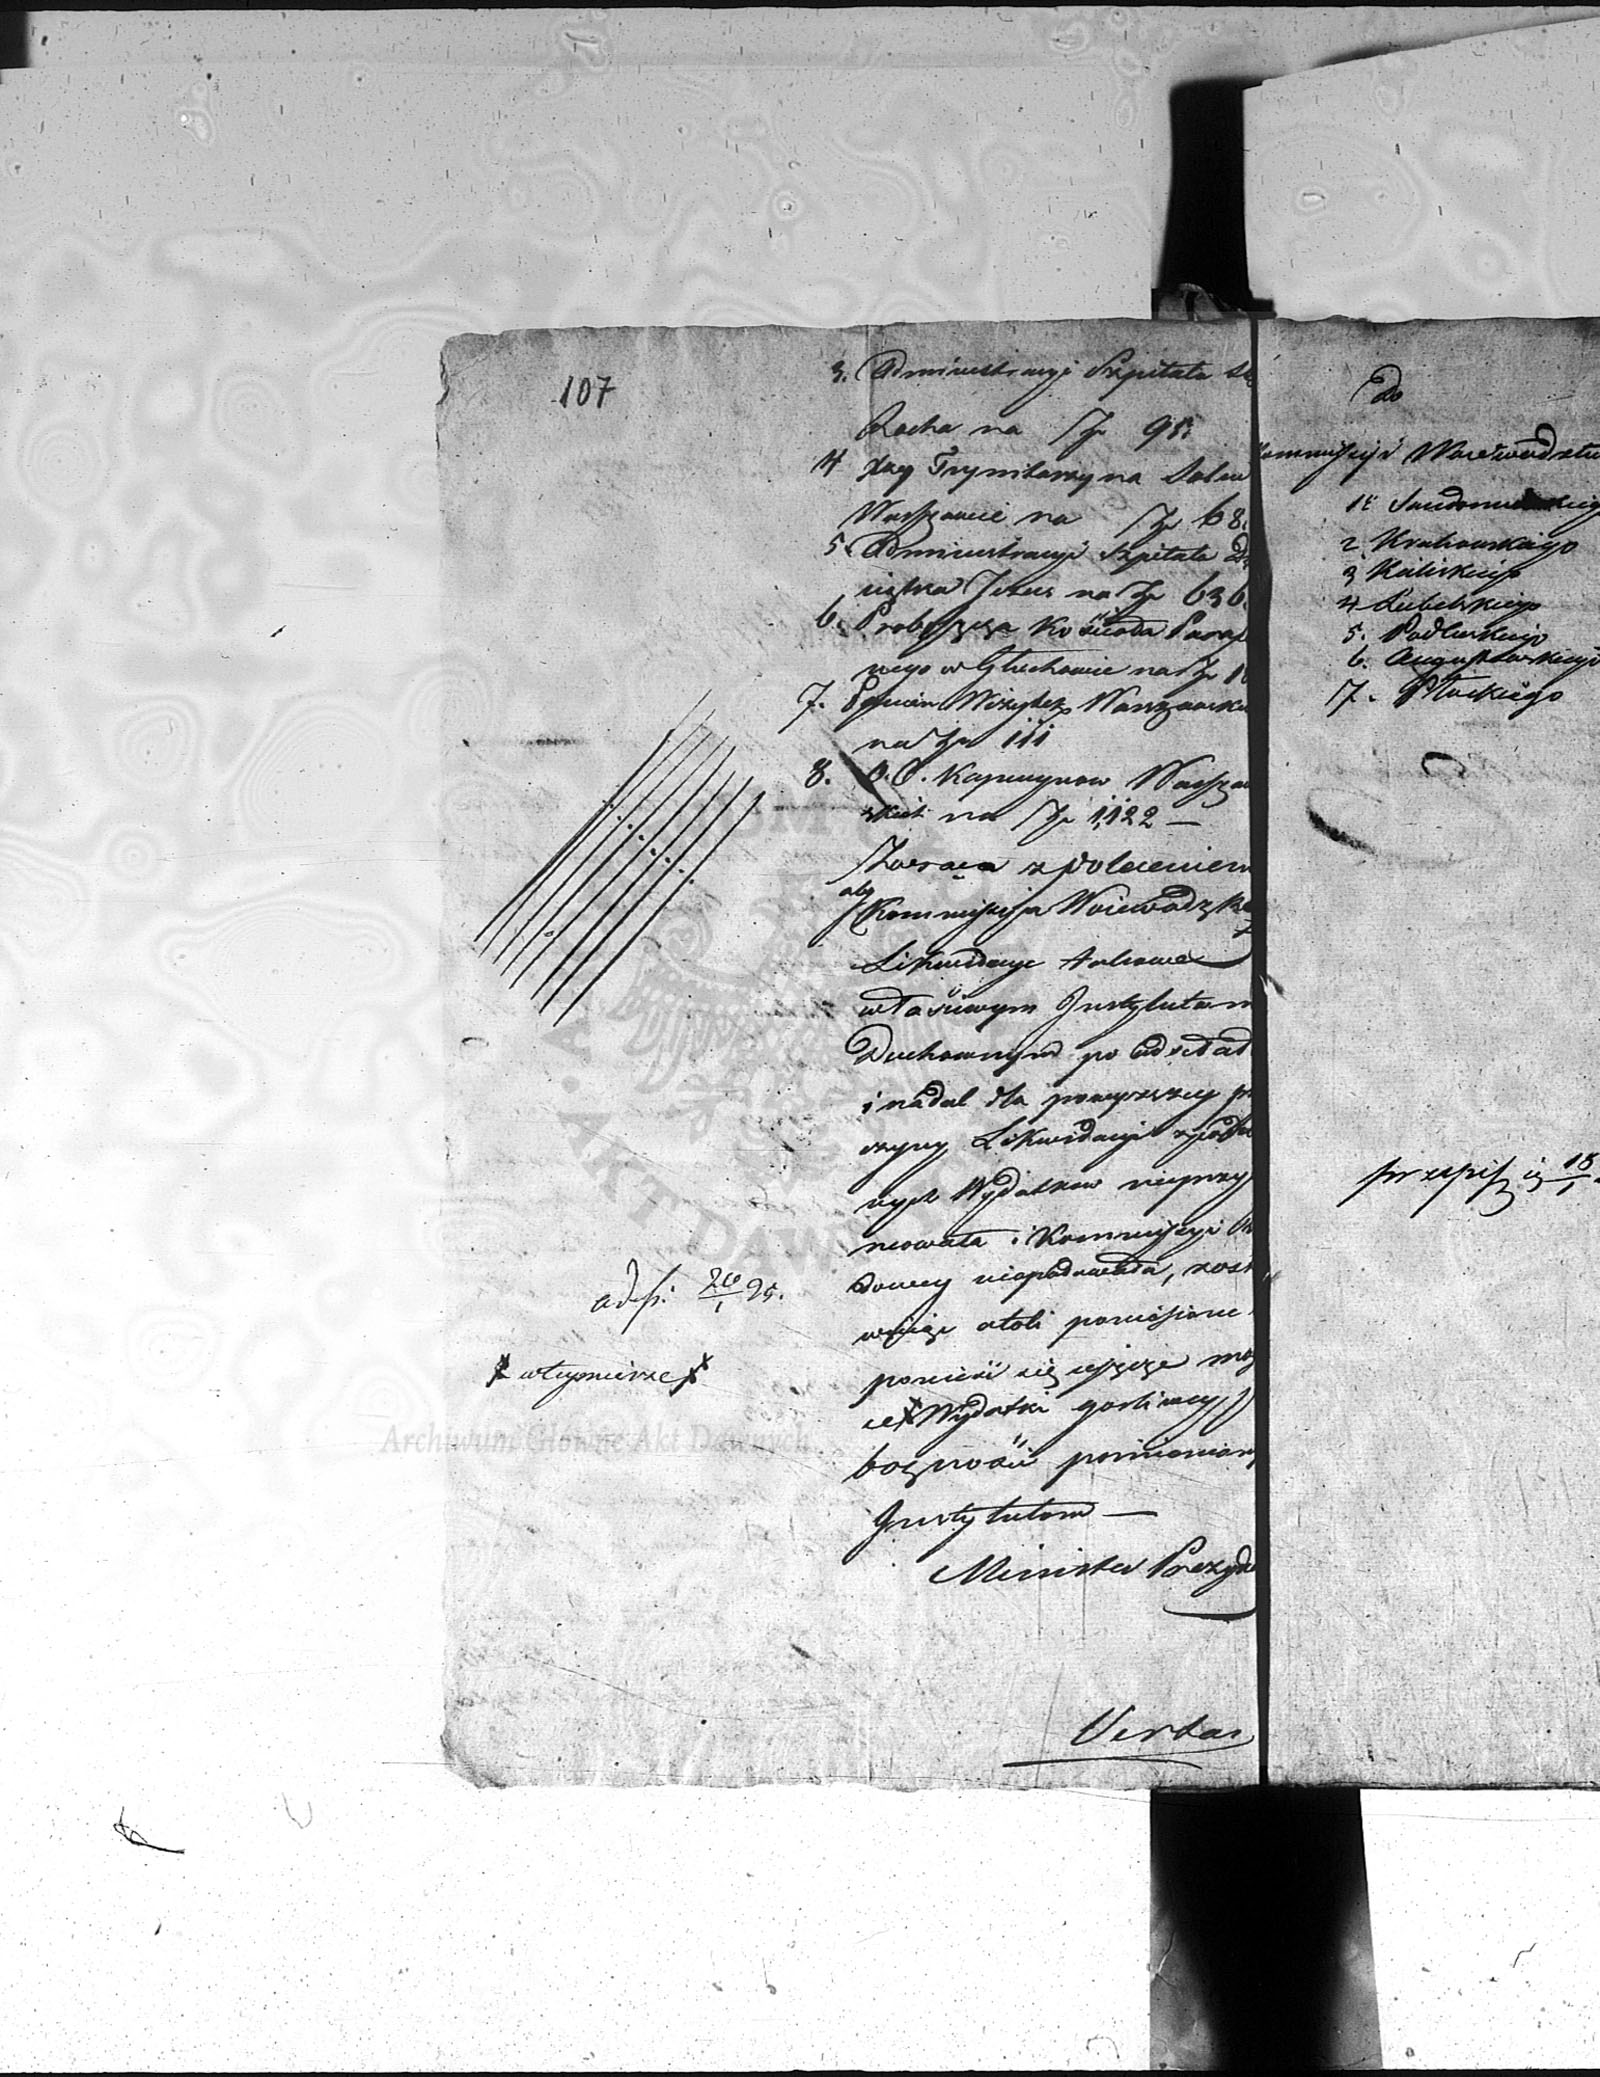 107
3. Administracyi Szpitala Sa
Rocha na Złp 95.
4 Xcy Trynitarzy na Solcu
Warszawie na Złp 68.
5. Administracyi Szpitala Dz
ciątka Jezus na Złp 636.
6. Proboszcza Kościoła Paraf
nego w Głuchowie na Złp 10
7. Panien Wizytek Warszawsk
na Złp 111
8. O.O. Kapucynow Warszaw
skich na Złp 1,122 —
Zwraca z poleceniem
aby Kommissyja Woiewódzka
Likwidacye takowe
właściwym Instytutom
Duchownym po odsełał
i nadal dla powyższey pr
czyny Likwidacyi
nych Wydatkow nieprzy
mowała i Kommissyi Rz
dowey niepodawała,
atoli poniesione
ponieść się ieszcze mog
ce x Wydatki gorliwey
bożności pomienion
Instytutom —
Minister Prezyd
adsp: 26/1 25.
x w tey mierze x
Do
Kommissyi Woiewództw
1. Sandomirskiego
2. Krakowskiego
3 Kaliskiego
4 Lubelskiego
5. Podlaskiego
6. Augustowskiego
7. Płockiego
18/1
NUM
AKT DAW
Archiwum Główne Akt Dawnych